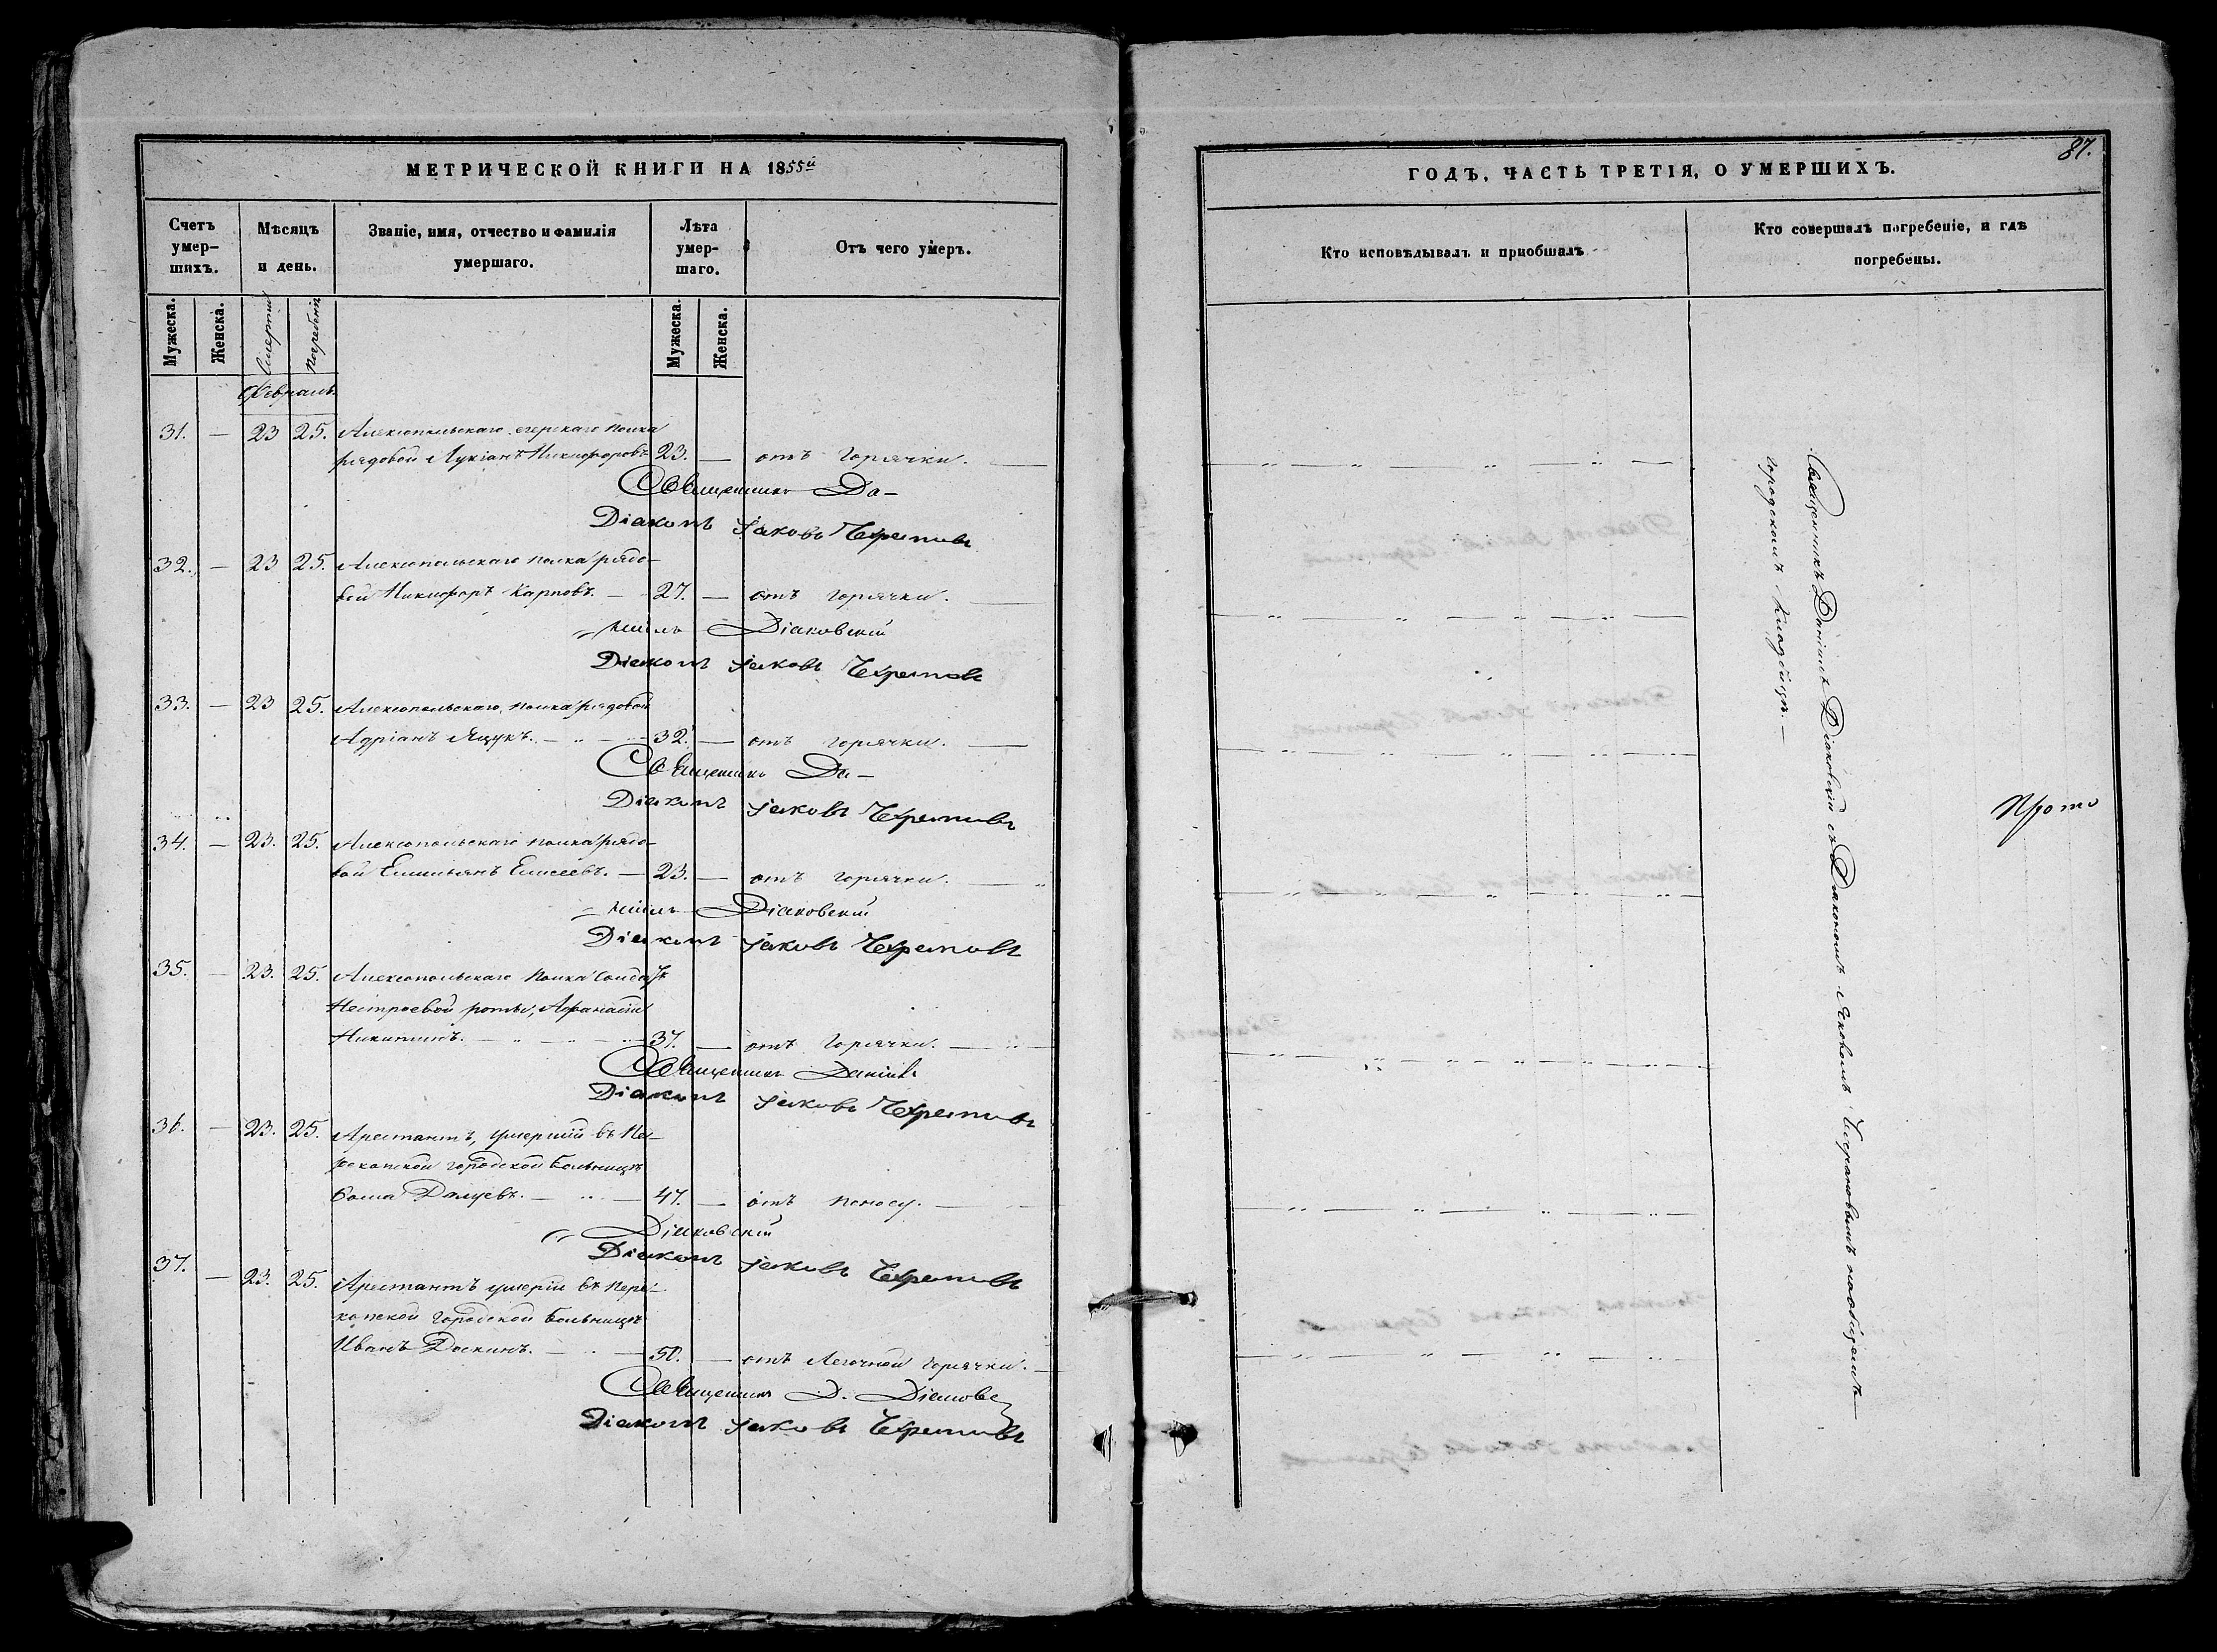 МЕТРИЧЕСКОЙ КНИГИ НА 1855й
Счетъ умер- шихъ.
Мѣсяцъ и день.
Званіе, имя, отчество и фамилія умершаго.
Лѣта умер- шаго.
Отъ чего умеръ.
Мужеска.
Женска.
Смерти
Погребенія
Мужеска.
Женска.
Февраль.
31. — 23 25. Алексопольскаго егерскаго полка
рядовой Лукіанъ Никифоровъ 23. — отъ горячки. —
Священникъ Да-
Діаконъ Іаковъ Чехрановъ
32. — 23 25. Алексопольскаго полка рядо-
вой Никифоръ Карповъ. — 27. — отъ горячки. —
ніилъ Діаковскій
Діаконъ Іаковъ Чехрановъ
33. — 23 25. Алексопольскаго полка рядовой
Адріанъ Ящукъ. — 32. — отъ горячки. —
Священникъ Да-
Діаконъ Іаковъ Чехрановъ
34. — 23. 25. Алексопольскаго полка рядо-
вой Емельянъ Елисеевъ. — 23. — отъ горячки. —
ніилъ Діаковскій
Діаконъ Іаковъ Чехрановъ
35. — 23. 25. Алексопольскаго полка Солдатъ
Нестроевой роты, Афанасій
Никитинъ. — 37. — отъ горячки. —
Священникъ Даніилъ
Діаконъ Іаковъ Чехрановъ
36. — 23. 25. Арестантъ, умершій въ Пе-
рекопской городской больницѣ
— 47. — отъ поносу. —
Діаковскій
Діаконъ Іаковъ Чехрановъ
37. — 23. 25. Арестантъ умершій въ Пере-
копской городской больницѣ
Иванъ Доскинъ. — 50. — отъ легочной горячки. —
Священникъ Д. Діаковс
Діаконъ Іаковъ Чехрановъ
87.
ГОДЪ, ЧАСТЬ ТРЕТІЯ, О УМЕРШИХЪ.
Кто исповѣдывалъ и пріобщалъ
Кто совершалъ погребеніе, и гдѣ погребены.
Священникъ Даніилъ Діаковскій съ Діакономъ Яковомъ Чехрановымъ на общемъ
городскомъ кладбищѣ. —
Прото